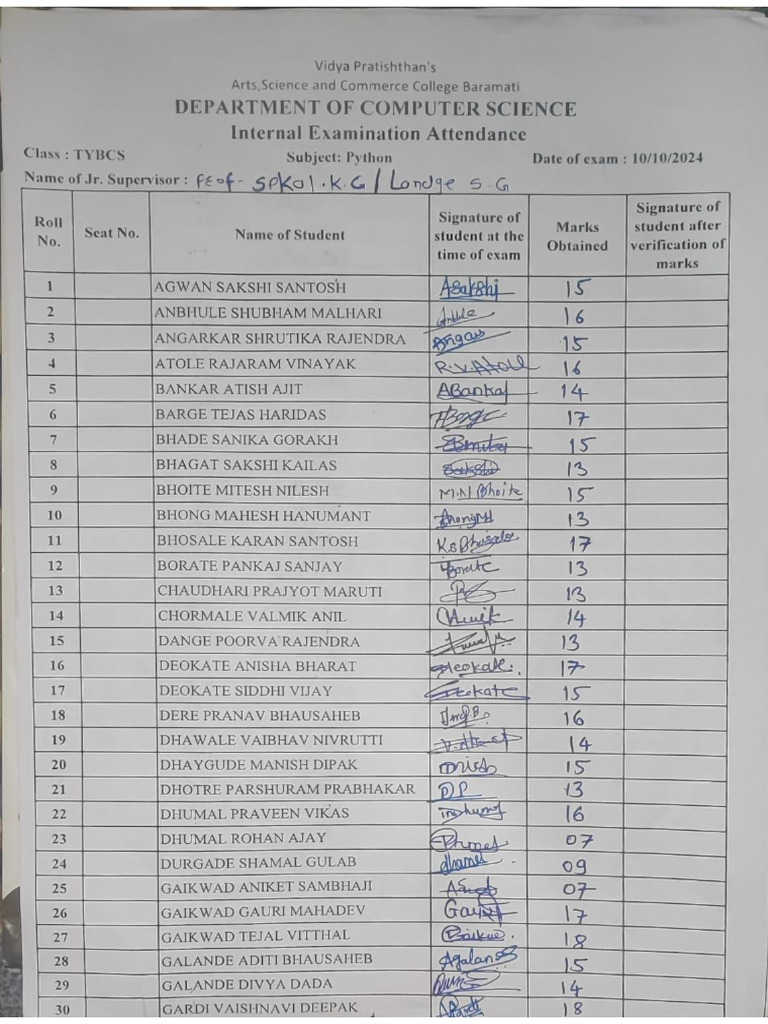 Vidya Pratishthan's
Arts,Science and Commerce College Baramati
DEPARTMENT OF COMPUTER SCIENCE
Internal Examination Attendance
Class : TYBCS Subject: Python Date of exam : 10/10/2024
Name of Jr. Supervisor : K.G / Londge S.G
Roll No. Seat No. Name of Student Signature of student at the time of exam Marks Obtained Signature of student after verification of marks
1 AGWAN SAKSHI SANTOSH ASakshi 15
2 ANBHULE SHUBHAM MALHARI 16
3 ANGARKAR SHRUTIKA RAJENDRA 15
4 ATOLE RAJARAM VINAYAK R.V.Atole 16
5 BANKAR ATISH AJIT ABankar 14
6 BARGE TEJAS HARIDAS 17
7 BHADE SANIKA GORAKH 15
8 BHAGAT SAKSHI KAILAS Sakshi 13
9 BHOITE MITESH NILESH M.N Bhoite 15
10 BHONG MAHESH HANUMANT 13
11 BHOSALE KARAN SANTOSH K.S Bhosale 17
12 BORATE PANKAJ SANJAY Borate 13
13 CHAUDHARI PRAJYOT MARUTI 13
14 CHORMALE VALMIK ANIL 14
15 DANGE POORVA RAJENDRA 13
16 DEOKATE ANISHA BHARAT Deokate. 17
17 DEOKATE SIDDHI VIJAY Deokate 15
18 DERE PRANAV BHAUSAHEB 16
19 DHAWALE VAIBHAV NIVRUTTI 14
20 DHAYGUDE MANISH DIPAK 15
21 DHOTRE PARSHURAM PRABHAKAR DP 13
22 DHUMAL PRAVEEN VIKAS 16
23 DHUMAL ROHAN AJAY 07
24 DURGADE SHAMAL GULAB 09
25 GAIKWAD ANIKET SAMBHAJI 07
26 GAIKWAD GAURI MAHADEV 17
27 GAIKWAD TEJAL VITTHAL 18
28 GALANDE ADITI BHAUSAHEB 15
29 GALANDE DIVYA DADA 14
30 GARDI VAISHNAVI DEEPAK 18